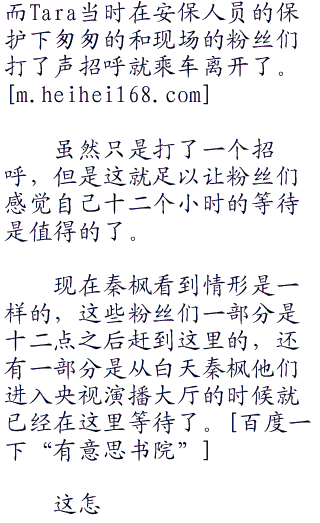 而Tara当时在安保人员的保
护下匆匆的和现场的粉丝们
打了声招呼就乘车离开了。
[m.heihei168.com]
虽然只是打了一个招
呼，但是这就足以让粉丝们
感觉自己十二个小时的等待
是值得的了。
现在秦枫看到情形是一
样的，这些粉丝们一部分是
十二点之后赶到这里的，还
有一部分是从白天秦枫他们
进入央视演播大厅的时候就
已经在这里等待了。[百度一
下“有意思书院”]
这怎